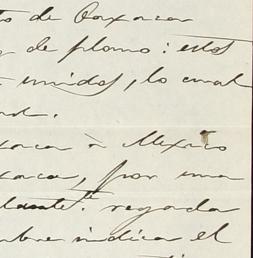 to de Oaxaca
y de plomo: estos
unidos, lo cual
xaca á Mexico
xaca, por una
regada
mbre indica el